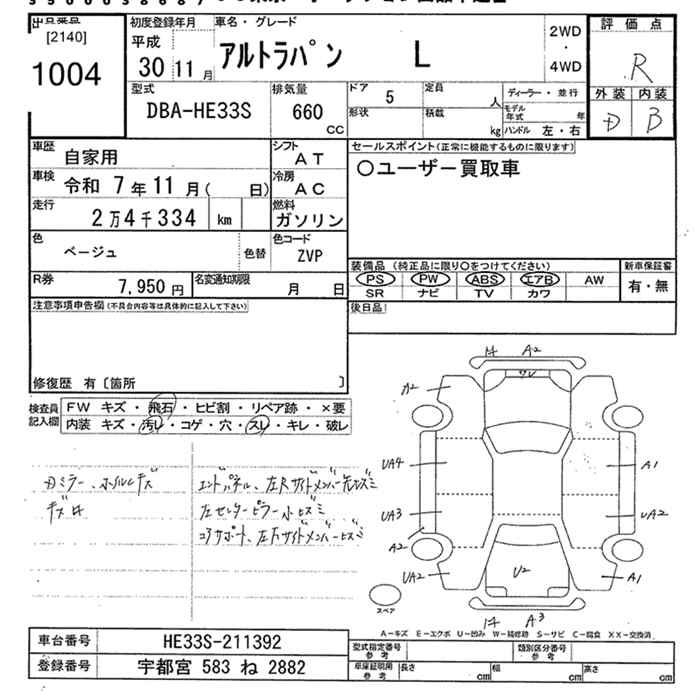 出品番号
[2140]
1004
初度登録年月
平成
30 11 月
車名・グレード
アルトラパン L
2WD
・
4WD
評価点
R
外装 内装
D B
型式
DBA-HE33S
排気量
660
CC
ドア 5
形状
定員 人
積載 kg
ディーラー・並行
モデル年式 年
ハンドル 左・右
車歴 自家用
シフト AT
車検 令和 7年 11月( 日)
冷房 AC
走行 2万4千334 km
燃料 ガソリン
色 ベージュ 色替
色コード ZVP
R券 7,950 円
名変通知期限 月 日
セールスポイント(正常に機能するものに限ります)
○ユーザー買取車
装備品 (純正品に限り○をつけてください)
PS PW ABS エアB AW
SR ナビ TV カワ
新車保証書
有・無
後日品
注意事項申告欄(不具合内容等は具体的に記入して下さい)
修復歴 有[箇所 ]
検査員記入欄
FW キズ・飛石・ヒビ割・リペア跡・×要
内装 キズ・汚レ・コゲ・穴・スレ・キレ・破レ
エンドパネル、左Rサイドメンバー
左センターピラー
コアサポート、左Fサイドメンバー
キ A2
サビ
A2
UA4
A1
UA3
UA2
A2
UA2
U2
A1
キ A3
スペア
A-キズ E-エクボ U-凹み W-補修跡 S-サビ C-腐食 XX-交換済
車台番号 HE33S-211392
登録番号 宇都宮 583 ね 2882
型式指定番号 参考
類別区分番号 参考
車庫証明用 参考
長さ cm
幅 cm
高さ cm